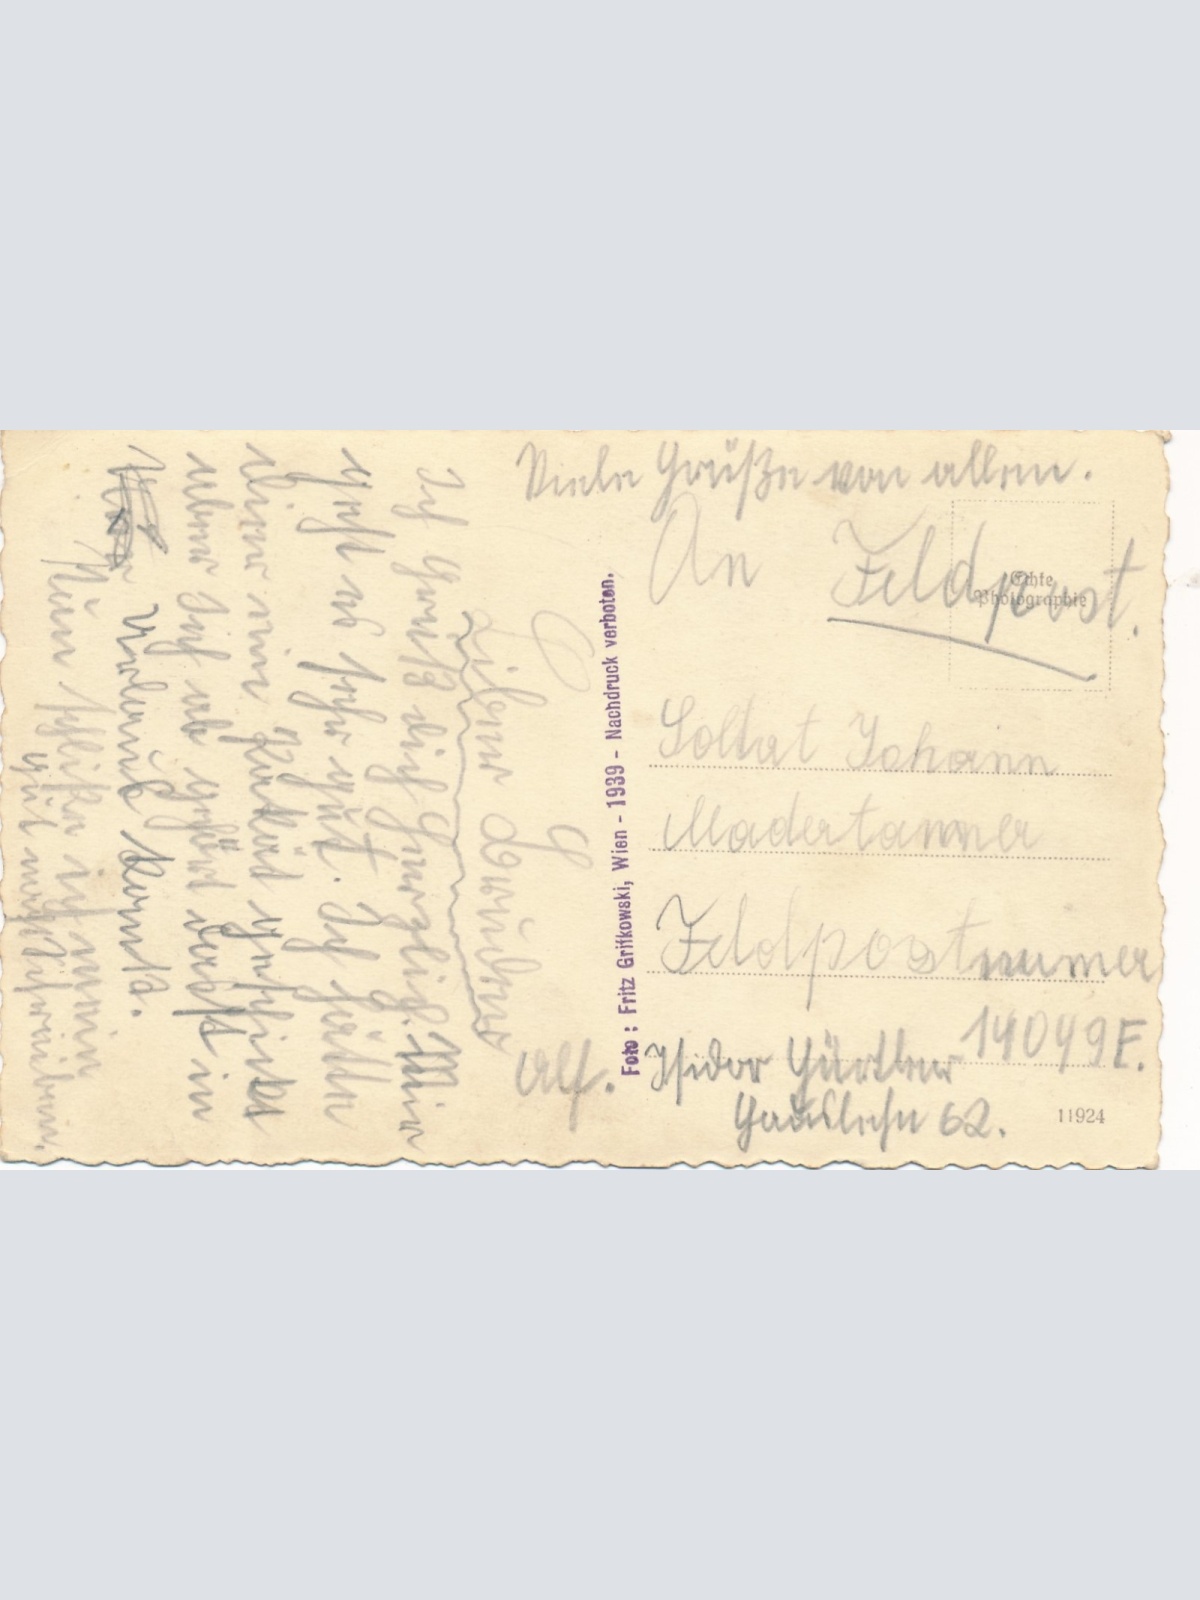 Viele Grüße von allen.
An Feldpost.
Echte
Photographie
Soltat Johann
Madertanner
Feldpostnummer
14049E.
Alf. Isidor Gürtler
62.
11924
Foto: Fritz Grifkowski, Wien - 1939 - Nachdruck verboten.
Liber Bruder
Ich Grüß dich Herzlich. Mir
geht es sehr gut. Ich hätte
dir eine geschickt
aber Ich
Urlaub komst.
Nun schließe ich mein